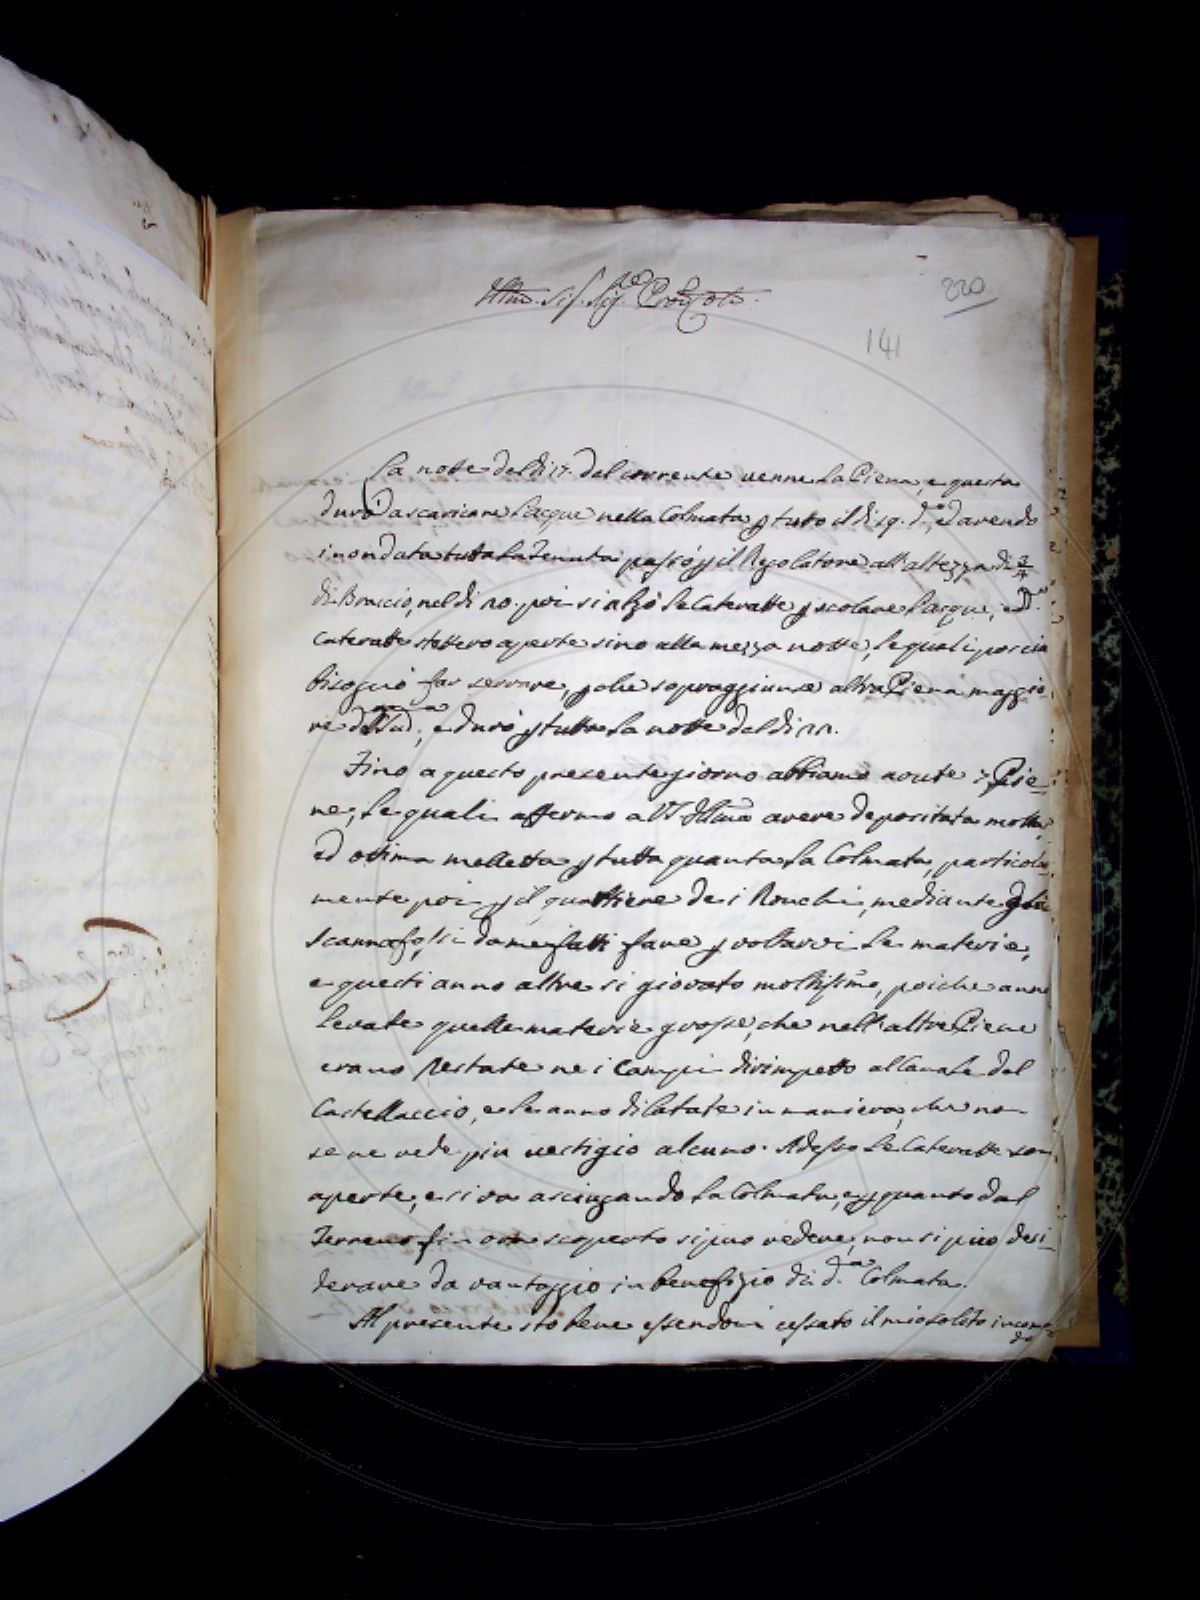 Illmo. Sig. Sig.
220
141
La notte del dì 17. del corrente venne la Piena, e questa
durò a scaricare l'acque nella Colmata p tutto il dì 19. d.º, ed avendo
inondata tutta la Tenuta passò p il Regolatore all'altezza di 3/4
di Braccio, nel dì 20. poi si alzò le Cateratte p scolare l'acque, e d.e
Cateratte stettero aperte sino alla mezza notte, le quali poscia
bisognò far serrare, p che sopraggiunse altra Piena maggio-
re e durò p tutta la notte del dì 22.
Fino a questo presente giorno abbiamo avute 7 Pie-
ne, le quali affermo a VS Illma avere depositata molta,
ed ottima melletta p tutta quanta la Colmata, particolar
mente poi p il quartiere de i Ronchi, mediante gli
scannafossi da me fatti fare p voltarvi le materie,
e questi anno altresi giovato moltissmo, poiche anno
levate quelle materie grosse, che nell'altre Piene
erano restate ne i Campi dirimpetto al Canale del
Castellaccio, e le anno dilatate in maniera, che no
se ne vede piu vestigio alcuno. Adesso le Cateratte son
aperte, e si va asciugando la Colmata, e p quanto dal
Terreno fin ora scoperto si puo vedere, non si puo desi-
derare da vantaggio in benefizio di d.a Colmata.
Al presente sto bene essendomi cessato il mio solito incomo-
do